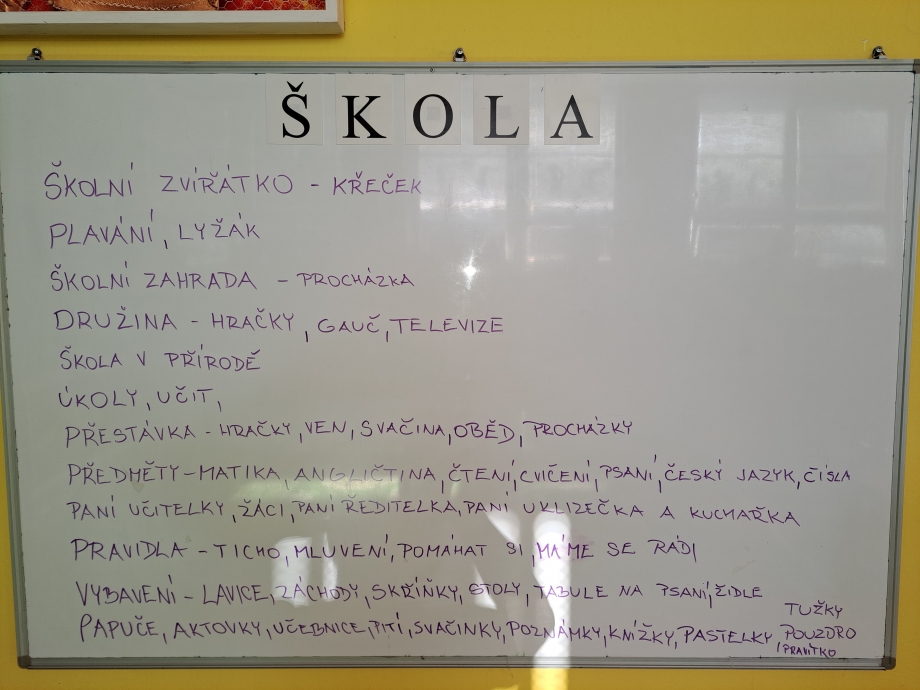 ŠKOLA
ŠKOLNÍ ZVÍŘÁTKO - KŘEČEK
PLAVÁNÍ, LYŽÁK
ŠKOLNÍ ZAHRADA - PROCHÁZKA
DRUŽINA - HRAČKY, GAUČ, TELEVIZE
ŠKOLA V PŘÍRODĚ
ÚKOLY, UČIT,
PŘESTÁVKA - HRAČKY, VEN, SVAČINA, OBĚD, PROCHÁZKY
PŘEDMĚTY - MATIKA, ANGLIČTINA, ČTENÍ, CVIČENÍ, PSANÍ, ČESKÝ JAZYK, ČÍSLA
PANÍ UČITELKY, ŽÁCI, PANÍ ŘEDITELKA, PANÍ UKLIZEČKA A KUCHAŘKA
PRAVIDLA - TICHO, MLUVENÍ, POMÁHAT SI, MÁME SE RÁDI
VYBAVENÍ - LAVICE, ZÁCHODY, SKŘÍŇKY, STOLY, TABULE NA PSANÍ, ŽIDLE
PAPUČE, AKTOVKY, UČEBNICE, PITÍ, SVAČINKY, POZNÁMKY, KNÍŽKY, PASTELKY, TUŽKY
POUZDRO
, PRAVÍTKO